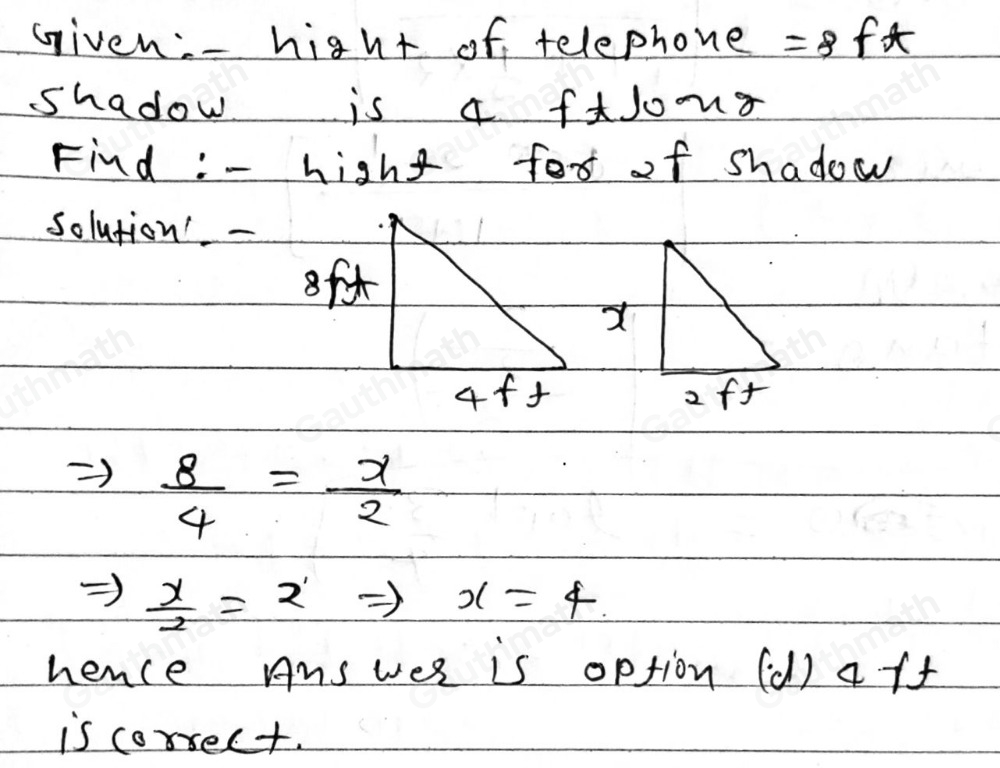 Given:- hight of telephone = 8 ft
shadow is 4 ft long
Find :- hight for 2f shadow
solution:-
8ft x
4 ft 2 ft
⇒ 8/4 = x/2
⇒ x/2 = 2 ⇒ x = 4
hence Answer is option (d) 4 ft
is correct.